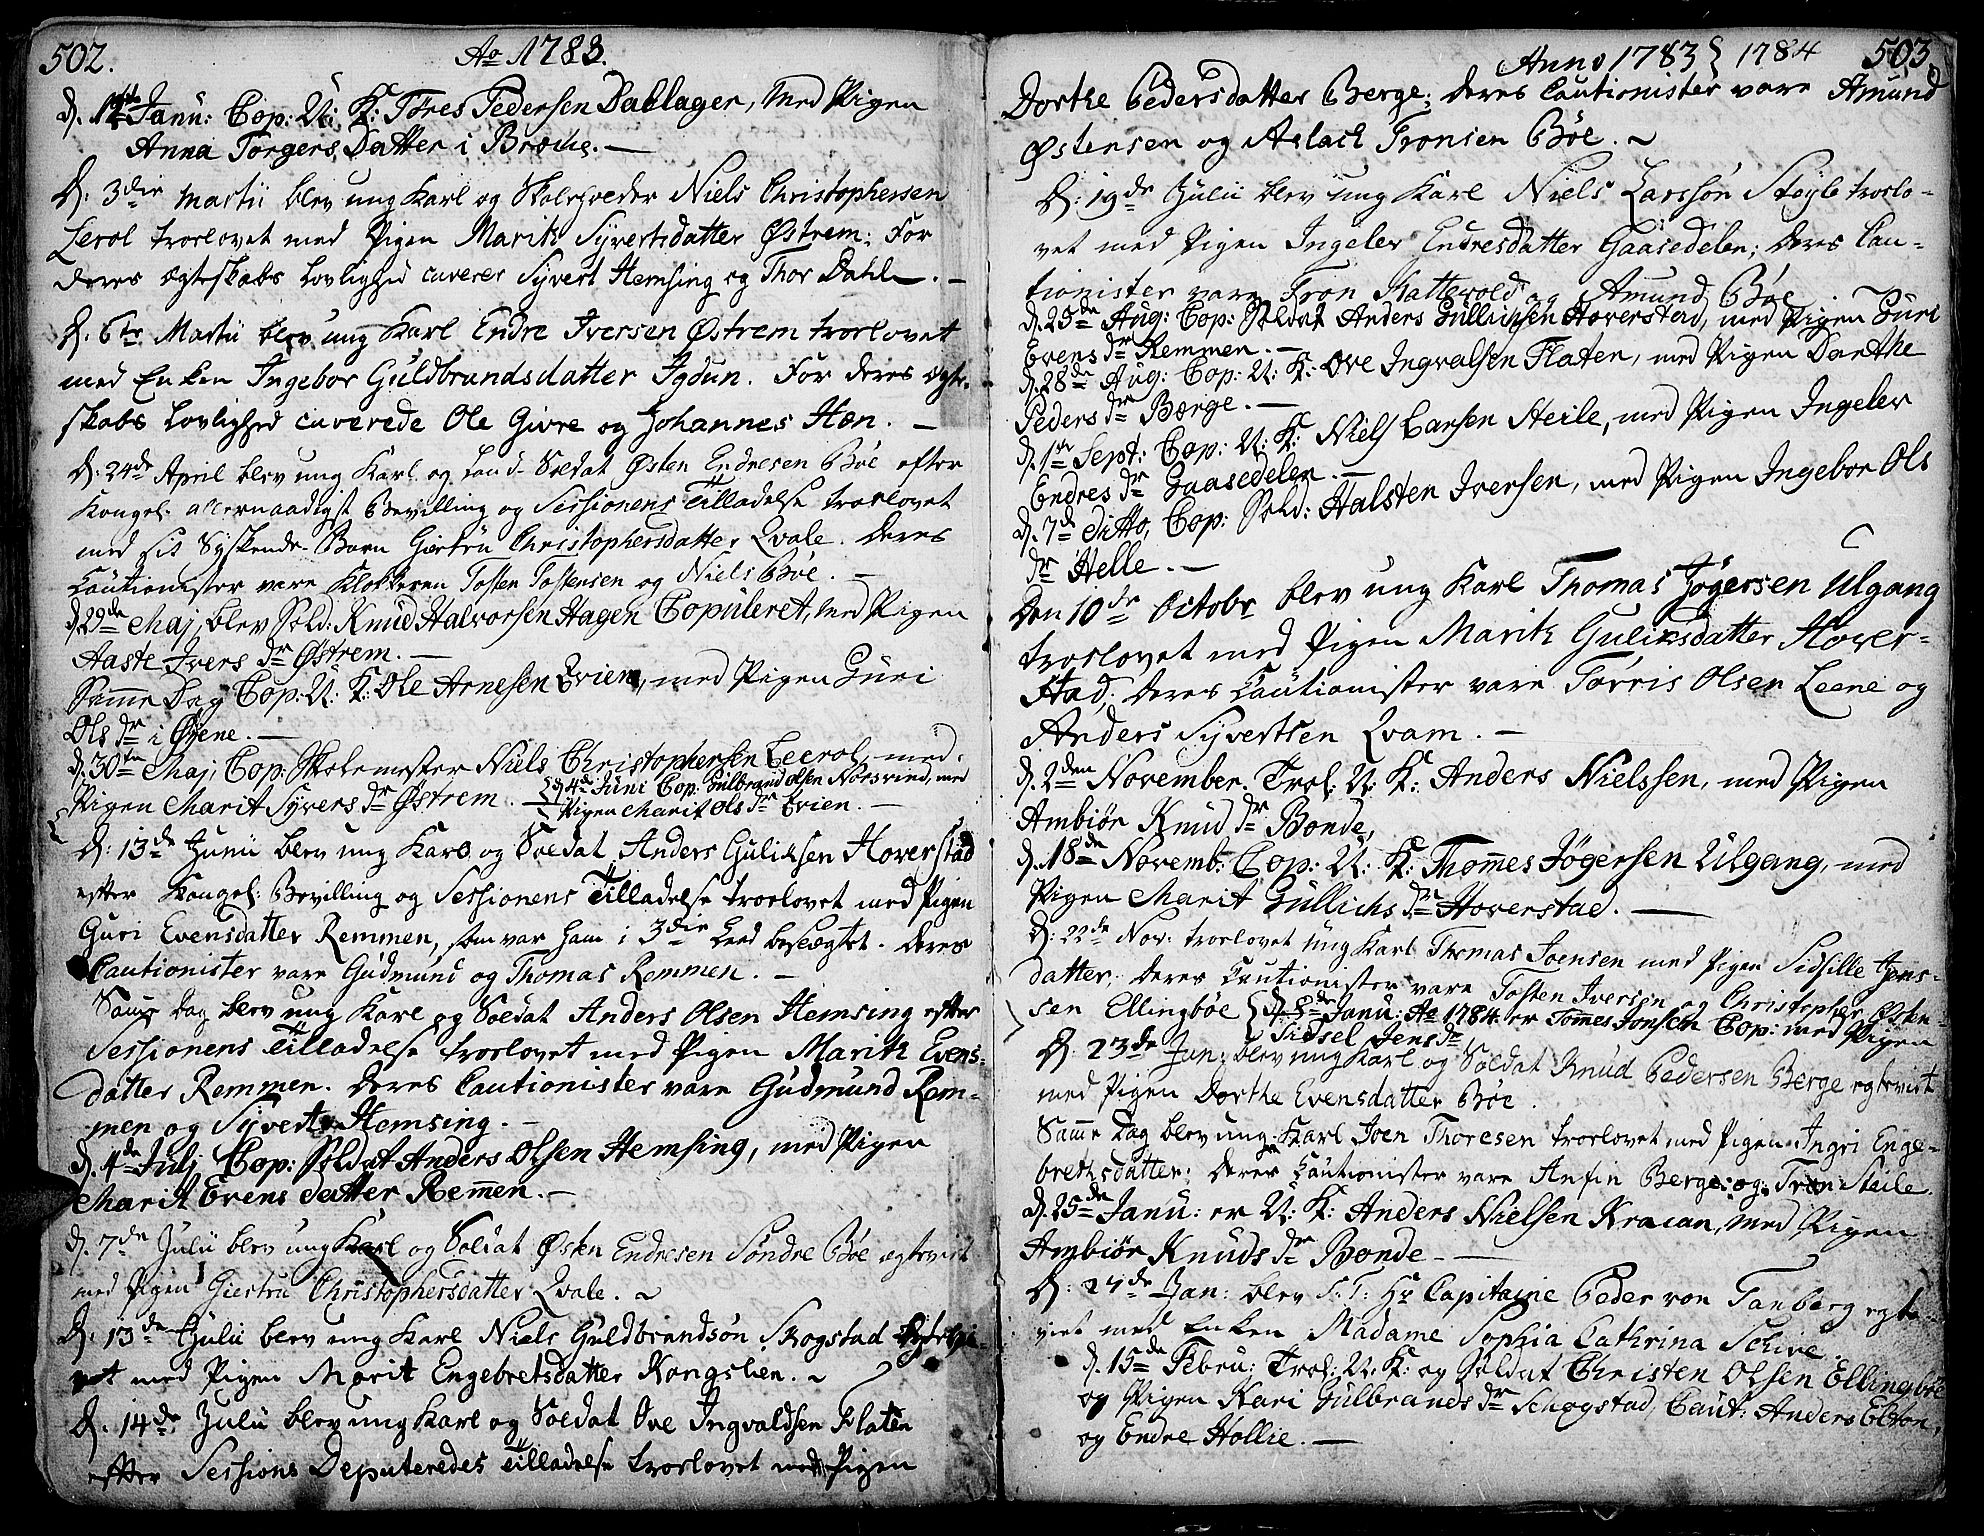 502.
Ao 1783.
d. 1te Janu: Cop: U: K: Tores Pedersen Dahlager, med Pigen
Anna Torgers Datter i Bræche. —
D: 3die Martii blev ung Karl og Skoleholder Niels Christophersen
Lerol trorlovet med Pigen Marith Syvertsdatter Østrem; For
deres ægteskabs Lovlighed caverer Syvert Hemsing og Thor Dahle. —
D: 6te Martii blev ung Karl Endre Iversen Østrem trorlovet
med Enken Ingebor Guldbrandsdatter Igdun. For deres ægte-
skabs Lovlighed caverede Ole Givre og Johannes Hæn. —
D: 24de April blev ung Karl og Land-Soldat Østen Endresen Bøe efter
Kongel: allernaadigst Bevilling og Sessionens Tilladelse trorlovet
med sit Syskende-Barn Giertru Christophersdatter Qvale. Deres
Cautionister vare Klokkeren Tosten Tostensen og Niels Bøe. —
d. 29de Maj, blev Sold: Knud Halvorsen Hagen Copuleret, med Pigen
Aaste Ivers Dr Østrem. —
Samme Dag Cop: U: K: Ole Arnesen Qvien, med Pigen Guri
Ols Dr i Øyene. —
d. 30te Maj, Cop: Skolemester Niels Christophersen Leerol, med
Pigen Marit Syvers Dr Østrem. — { d. 4de Juni Cop: Gulbrand Olsen Norsvind, med
Pigen Marit Ols Dr Qvien. —
D: 13de Junii blev ung Karl og Soldat Anders Guliksen Hoverstad
efter Kongel: Bevilling og Sessionens Tilladelse trorlovet med Pigen
Guri Evensdatter Remmen, som var ham i 3die Leed besvogret. Deres
Cautionister vare Gudmund og Thomas Remmen. —
Samme Dag blev ung Karl og Soldat Anders Olsen Hemsing efter
Sessionens Tilladelse trorlovet med Pigen Marith Evens-
datter Remmen. Deres Cautionister vare Gudmund Rem-
men og Syvert Hemsing. —
d. 4de Julj Cop: Soldat Anders Olsen Hemsing, med Pigen
Marit Evens Datter Remen. —
d. 7de Julii blev ung Karl og Soldat Østen Endresen Søndre Bøe egteviet
med Pigen Giertru Christophersdatter Qvale. ~
D: 13de Julii blev ung Karl Niels Guldbrandsøn Skogstad
vet med Pigen Marit Engebretsdatter Kongslien. ~
D. 14de Julii blev ung Karl og Soldat Ove Ingvaldsen Flaten
efter Sessions Deputeredes Tilladelse trorlovet med Pigen
Anno 1783 } 1784 503
Dorthe Pedersdatter Berge; deres Cautionister vare Amund
Østensen og Aslach Tronsen Bøe. ~
D: 19de Julii blev ung Karl Niels Larssøn Støyle trorlo-
vet med Pigen Ingeler Endresdatter Gaasedelen; deres Cau-
tionister vare Tron Mattevold og Amund Bøe.
d. 25de Aug: Cop: Soldat Anders Gullichsen Hoverstad, med Pigen Guri
Evens Dr Remmen. —
d. 28de Aug: Cop: U: K: Ove Ingvalsen Flaten, med Pigen Dorthe
Peders Dr Bærge. —
d. 1te Sept: Cop: U: K: Niels Larsen Steile, med Pigen Ingeler
Endres Dr Gaasedelen. —
d. 7de ditto, Cop: Sold: Halsten Iversen, med Pigen Ingebor Ols
Dr Helle. —
Den 10de Octobr blev ung Karl Thomas Jøgersen Ulgang
trorlovet med Pigen Marith Guliksdatter Hover-
stad; deres Cautionister vare Torris Olsen Leene og
Anders Syvertsen Qvam. —
d. 2den November. Trol: U: K: Anders Nielssen, med Pigen
Ambiør Knud Dr Bonde,
d. 18de Novemb: Cop: U: K: Thomes Jøgersen Ulgang, med
Pigen Marit Gullichs Dr Hoverstad. —
D: 22de Nov: trorlovet ung Karl Thomas Joensen med Pigen Sidsille Jens-
datter; deres Cautionister vare Tosten Iversen og Christopher Østen-
sen Ellingbøe { d. 5de Janu: Ao 1784 er Tommes Jonsen Cop: med Pigen
Sidsel Jens Dr
D: 23de Jan: blev ung Karl og Soldat Knud Pedersen Berge egteviet
med Pigen Dorthe Evensdatter Bøe.
Samme Dag blev ung Karl Joen Thoresen trorlovet med Pigen Ingri Enge-
bretsdatter; deres Cautionister vare Anfin Berge og Tron Steile.
d. 25de Janu: er U: K: Anders Nielsen Kracan, med Pigen
Ambiør Knuds Dr Bonde —
D: 27de Jan: blev S: T: Hr Capitaine Peder von Tanberg egte-
viet med Enken Madame Sophia Cathrina Schive.
d. 15de Febru: Trol: U: K: og Soldat Christen Olsen Ellingbøe
og Pigen Kari Gulbrands Dr Schogstad, Caut: Anders Elton,
og Endre Hollie. —